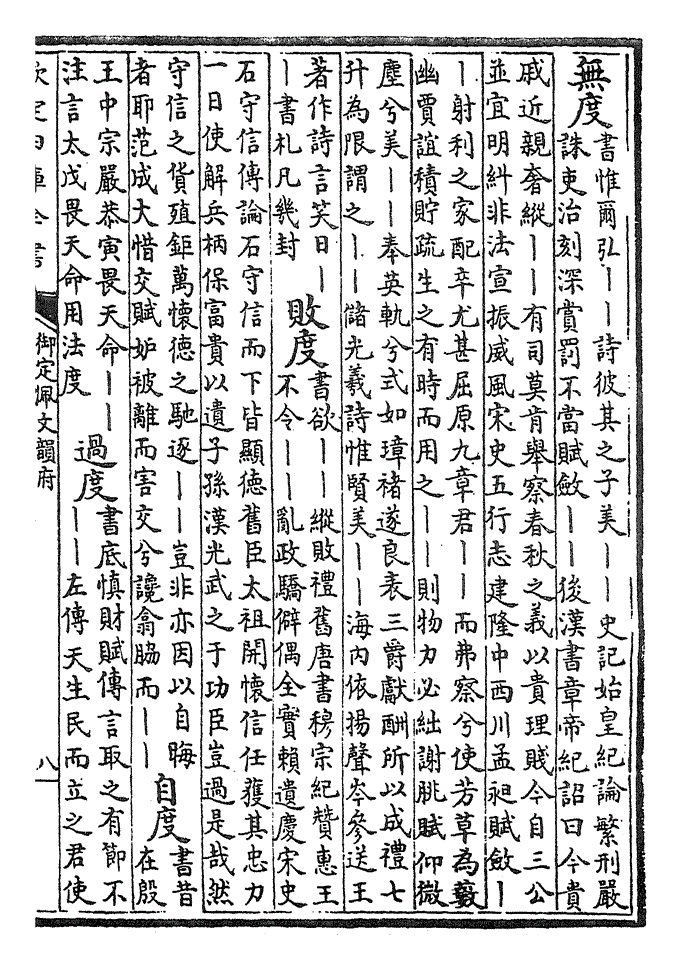 無度
書惟爾弘丨丨詩彼其之子美丨丨史記始皇紀論繁刑嚴
誅吏治刻深賞罰不當賦斂丨丨後漢書章帝紀詔曰今貴
戚近親奢縱丨丨有司莫肯舉察春秋之義以貴理賤今自三公
並宜明糾非法宣振威風宋史五行志建隆中西川孟昶賦斂丨
丨射利之家配卒尤甚屈原九章君丨丨而弗察兮使芳草為藪
幽賈誼積貯疏生之有時而用之丨丨則物力必絀謝朓賦仰微
塵兮美丨丨奉英軌兮式如璋褚遂良表三爵獻酬所以成禮七
升為限謂之丨丨儲光羲詩惟賢美丨丨海内依揚聲岑參送王
著作詩言笑日丨
丨書札凡幾封
敗度
書欲丨丨縱敗禮舊唐書穆宗紀贊惠王
不令丨丨亂政驕僻偶全實賴遺慶宋史
石守信傳論石守信而下皆顯德舊臣太祖開懷信任獲其忠力
一日使解兵柄保富貴以遺子孫漢光武之于功臣豈過是哉然
守信之貨殖鉅萬懷德之馳逐丨丨豈非亦因以自晦
者耶范成大惜交賦妒被離而害交兮讒翕脇而丨丨
自度
書昔
在殷
王中宗嚴恭寅畏天命丨丨
注言太戊畏天命用法度
過度
書底慎財賦傳言取之有節不
丨丨左傳天生民而立之君使
欽定四庫全書
御定佩文韻府
八